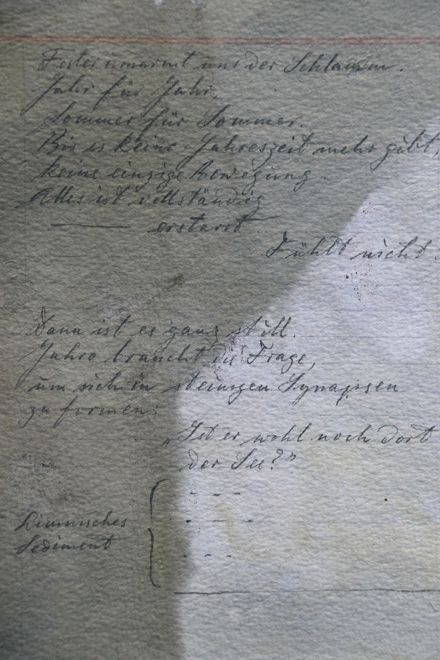 Fester umarmt uns der Schlamm.
Jahr für Jahr,
Sommer für Sommer.
Bis es keine Jahreszeit mehr gibt,
keine einzige Bewegung.
Alles ist vollständig
erstarrt
Fühlt nicht.
Dann ist es ganz still.
Jahre braucht die Frage,
um sich in steinigen Synapsen
zu formen:
„Ist er wohl noch dort
der See?"
- - -
- - -
- - -
Limnisches
Sediment